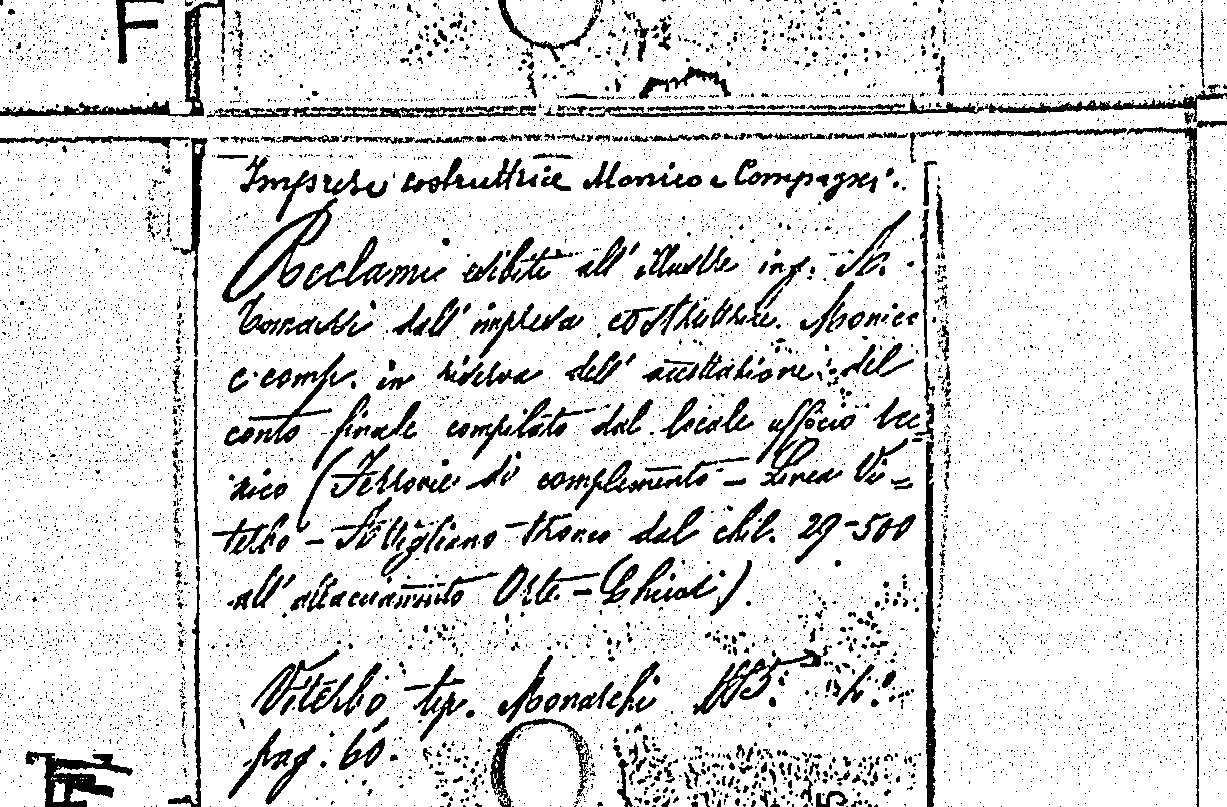 F
Impresa costruttrice Monico e Compagni.
Reclami esibiti all' illustre ing. St.
Tomassi dall' impresa costruttrice Monico
e comp. in riserva dell' accettazione del
conto finale compilato dal locale ufficio tec=
nico (Ferrovie di complemento – Linea Vi=
terbo – Attigliano tronco dal chil. 29-500
all' allacciamento Orte – Chiusi).
Viterbo tip. Monarchi
pag. 60.